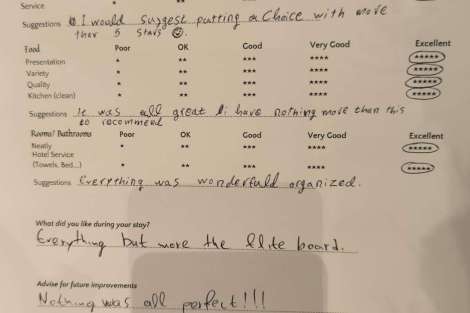 Service * ** *** **** *****
Suggestions I would suggest putting a Choice with more
than 5 stars ☺.
Food Poor OK Good Very Good Excellent
Presentation * ** *** **** *****
Variety * ** *** **** *****
Quality * ** *** **** *****
Kitchen (clean) * ** *** **** *****
Suggestions It was all great & i have nothing more than this
to recommend
Rooms/ Bathrooms Poor OK Good Very Good Excellent
Neatly * ** *** **** *****
Hotel Service
(Towels, Bed...) * ** *** **** *****
Suggestions Everything was wonderfuld organized.
What did you like during your stay?
Everything but more the Elite board.
Advise for future improvements
Nothing was all perfect!!!